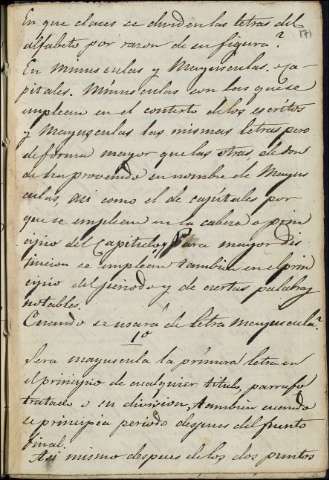 En que clases se dividen las letras del
alfabeto por razon de su figura?
(7)
En Minusculas y Mayusculas. o ca-
pitales. Minusculas son las que se
emplean en el contexto de los escritos
y Mayusculas las mismas letras pero
de forma mayor que las otras de don
de ha provenido su nombre de Mayus
culas, asi como el de capitales por
que se emplean en la cabeza o prin
cipio del Capitulo, y Para mayor Dis
tincion se emplean tambien en el prin
cipio del periodo y de ciertas palabras
notables.
Cuando se usará de letra mayuscula?
1º
Sera mayuscula la primera letra en
el principio de cualquier titulo, parrafo
tratado o su division, tambien cuando
se principia periodo despues del punto
final.
Asi mismo despues de los dos puntos